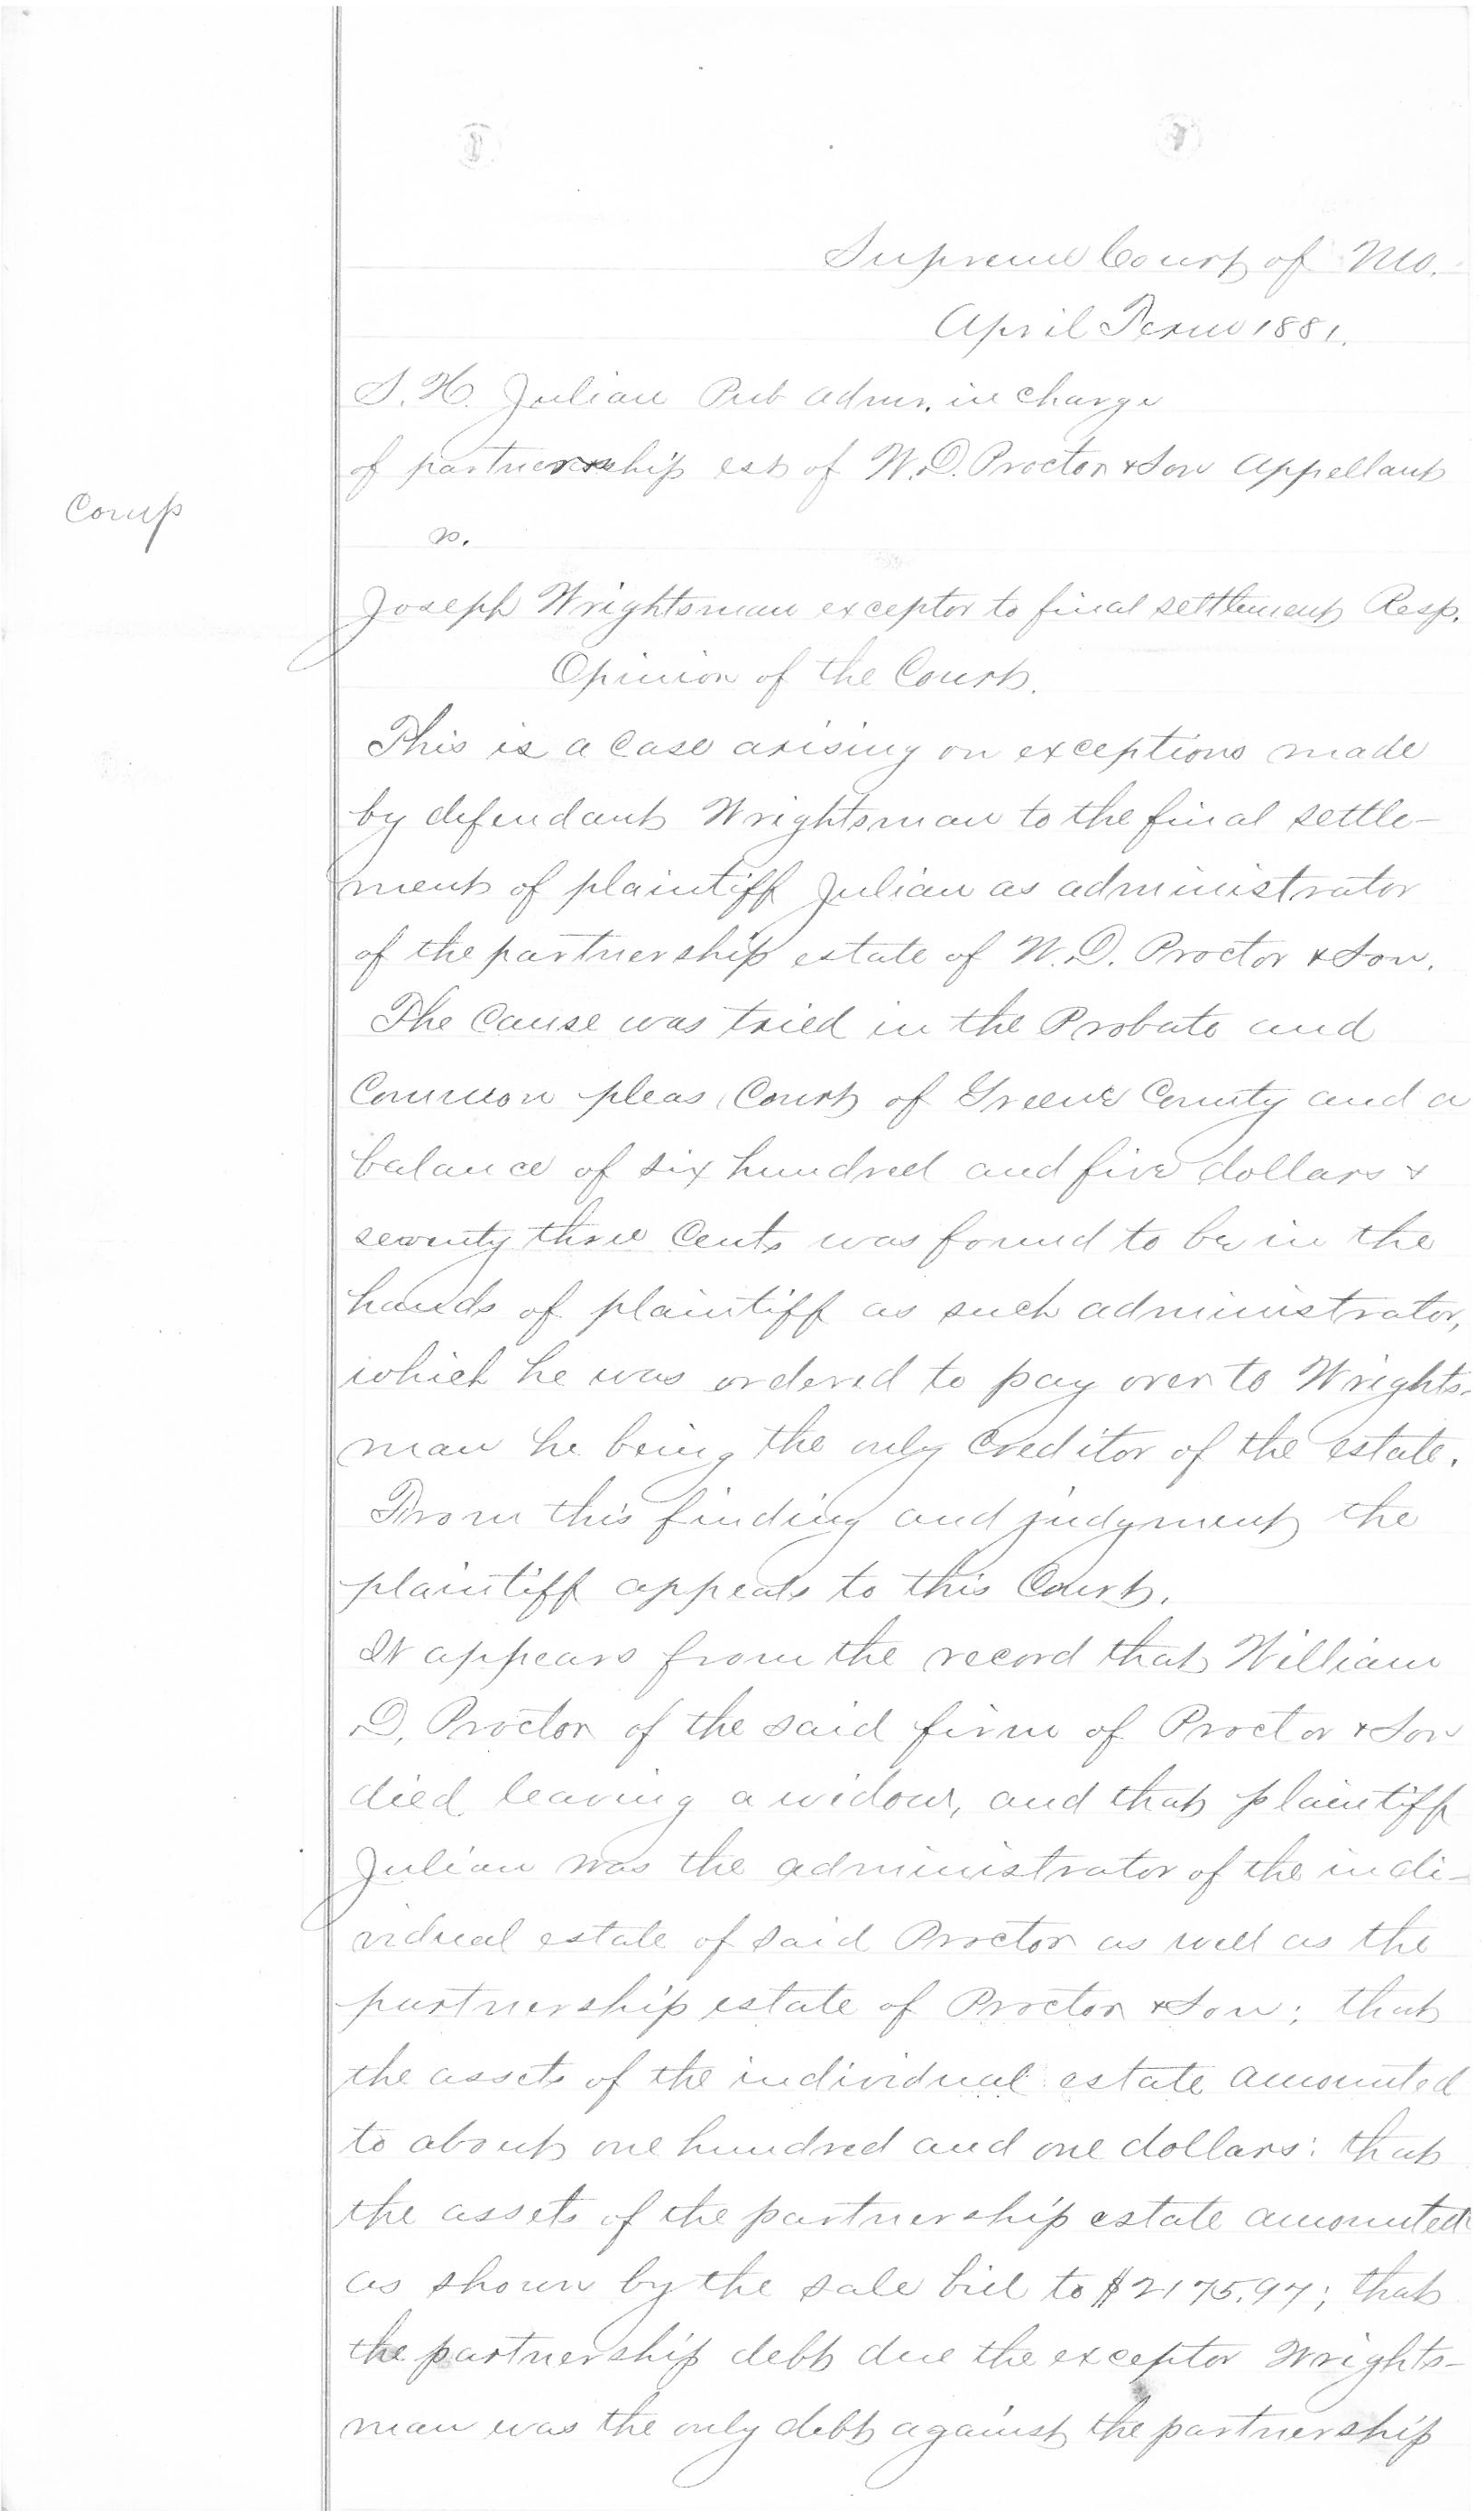 Supreme Court of Mo.
April Term 1881.
S. H. Julian Pub Admr. in charge
of partnership est of W. D. Proctor & Son Appellant
Comp
vs.
Joseph Wrightsman exceptor to final settlement Resp.
Opinion of the Court.
This is a case arising on exceptions made
by defendant Wrightsman to the final settle-
ment of plaintiff Julian as administrator
of the partnership estate of W. D. Proctor & Son.
The Cause was tried in the Probate and
Common pleas Court of Greene County and a
balance of six hundred and five dollars &
seventy three Cents was found to be in the
hands of plaintiff as such administrator,
which he was ordered to pay over to Wrights-
man he being the only Creditor of the estate.
From this finding and judgment the
plaintiff appeals to this Court.
It appears from the record that William
D. Proctor of the said firm of Proctor & Son
died leaving a widow, and that plaintiff
Julian was the administrator of the indi-
vidual estate of said Proctor as well as the
partnership estate of Proctor & Son; that
the assets of the individual estate amounted
to about one hundred and one dollars: that
the assets of the partnership estate amounted
as shown by the sale bill to $2175.97; that
the partnership debt due the exceptor Wrights-
man was the only debt against the partnership